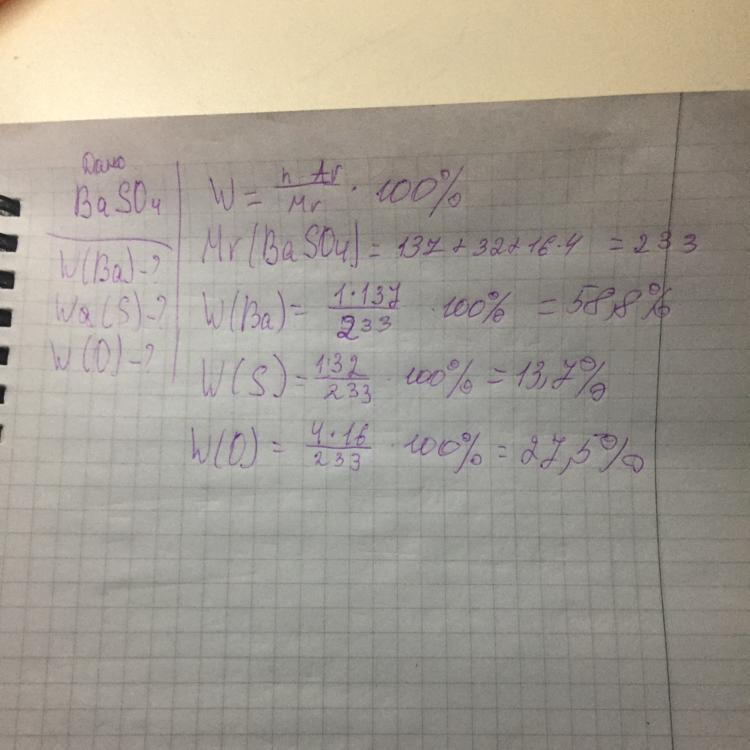 Дано
BaSO4
W(Ba)-?
Wa(S)-?
W(O)-?
W = n·Ar/Mr · 100%
Mr(BaSO4) = 137 + 32 + 16·4 = 233
W(Ba) = 1·137/233 · 100% = 58,8%
W(S) = 1·32/233 · 100% = 13,7%
W(O) = 4·16/233 · 100% = 27,5%